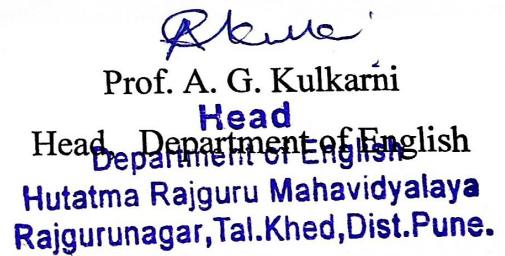 Prof. A. G. Kulkarni
Head
Head, Department of English
Department of English
Hutatma Rajguru Mahavidyalaya
Rajgurunagar,Tal.Khed,Dist.Pune.